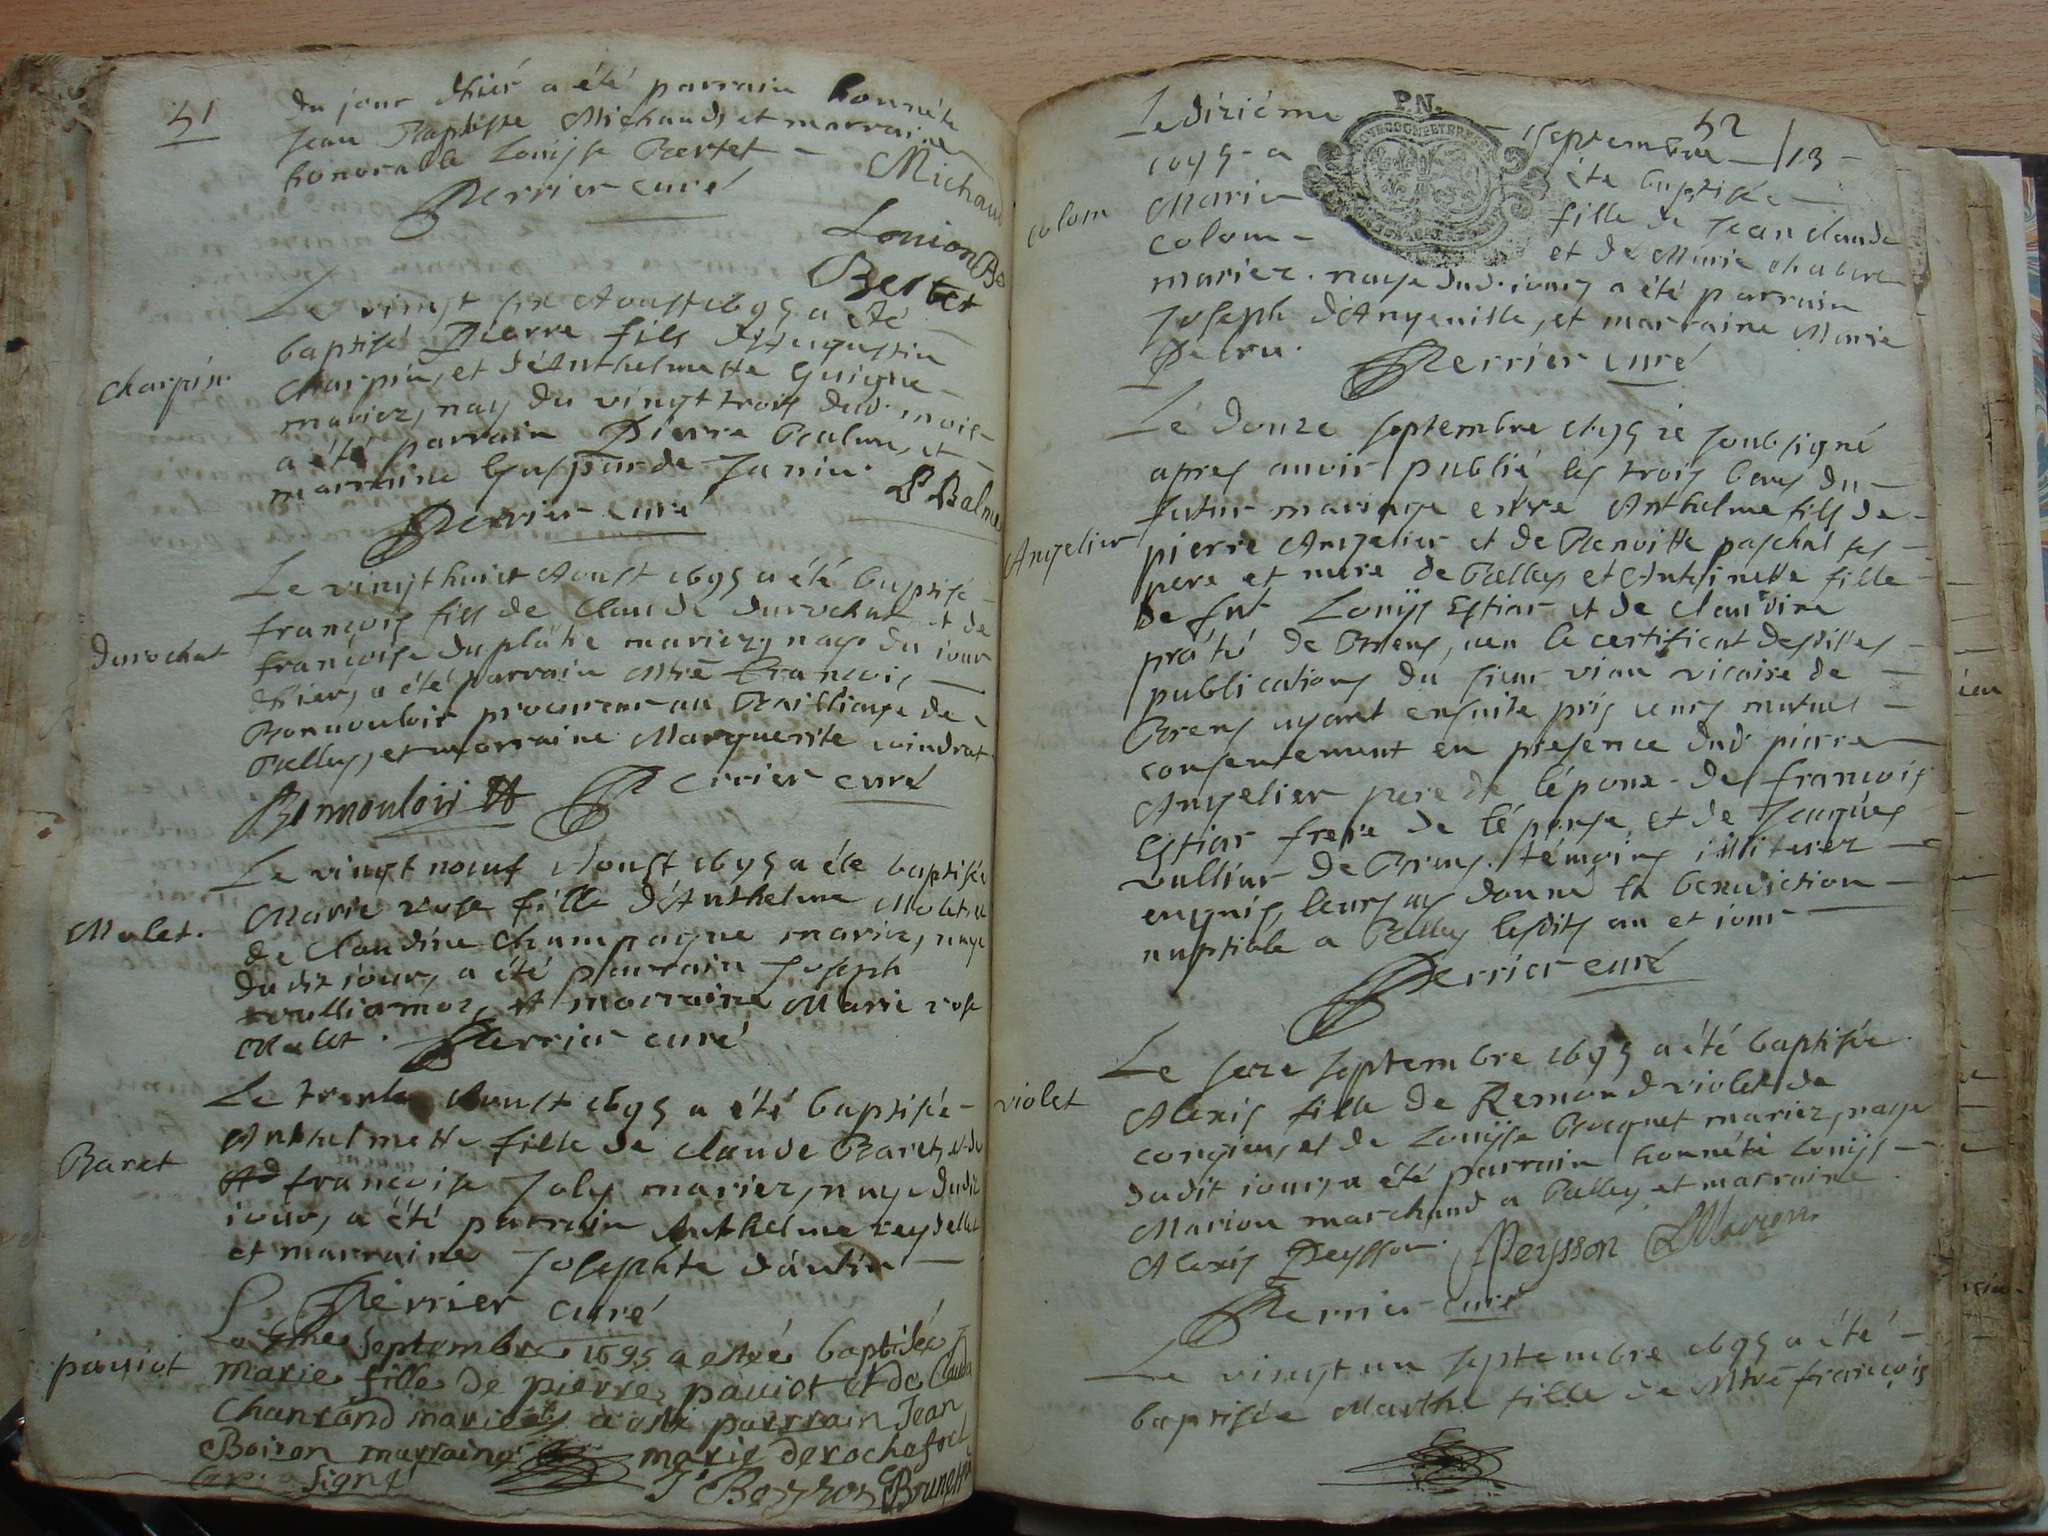 51
du jour d'hier a été parrain honnéte
Jean Baptiste Michaud, et marraine
honorable Louyse Bertet
Michaud
Perrier curé
Louison Be
Bertet
Le vingt six Aoust 1695 a été
baptisé Pierre fils d'Augustin
Charpin
Charpin, et d'Anthelmette Guigue
mariez, nay du vingt trois dud. mois
a été parrain Pierre Balme, et
marraine Gasparde Janin.
P Balme
Perrier curé
Le vingt huict Aoust 1695 a été baptisé
françois fils de Claude Durochat et de
Durochat
françoise Duplâtre mariez, nay du jour
d'hier, a été parrain Mtre François
Bonnouloir procureur au Bailliage de
Belley, et marraine Marguerite coindrat
Bonnouloir Perrier curé
Le vingt noeuf Aoust 1695 a été baptisée
Marie rose fille d'Anthelme Molet et
Molet.
de Claudine Champagne mariez, naye
dudit jour, a été parrain Joseph
vulliermoz, et marraine Marie rose
Molet. Perrier curé
Le trente Aoust 1695 a été baptisée
Anthelmette fille de Claude Baret, et de
Baret
françoise Joly mariez, naye dudit
jour, a été parrain Anthelme reydellet
et marraine Josephte dantin
Perrier curé
Le septembre 1695 a esté baptisée
pauiot
Marie fille de pierre pauiot et de Clauda
Chantand mariés a esté parrain Jean
Boiron marraine marie derochefort
signé J Boyron Brunet
52
Le diziéme septembre 13
P.N.
1695 a été baptisée
Marie fille de Jean Claude
colom
Colom et de Marie chabert
mariez. naye dud. jour, a été parrain
Joseph d'Angeuille, et marraine Marie
Pécru.
Perrier curé
Le Douze septembre 1695 ie soubsigné
apres auoir publié les trois bans du
futur mariage entre Anthelme fils de
Angelier
pierre Angelier et de Benoitte paschal ses
pere et mere de Belley, et Antoinette fille
de fut Louys Estiar et de claudine
prâtié de Brens, ueu le certificat desdites
publications du sieur uiau vicaire de
Brens ayant ensuite pris leurs mutuel
consentement en presence dud. pierre
Angelier pere de lépoux de françois
Estiar frere de lépouse, et de Jacques
vulliar de Brens. témoins illiterez
enquis, leurs ay donné la benediction
nuptiale a Belley lesdits an et iour
Perrier curé
Le seze septembre 1695 a été baptisée
violet
Alexis fille de Remond violet de
Congieu, et de Louyse Bocquet mariez, naye
dudit jour, a été parrain honnéte Louys
Marion marchand a Belley, et marraine
Alexis Peysson. Peysson LMarion
Perrier curé
Le vingt un septembre 1695 a été
baptisée Marthe fille de Mtre françois